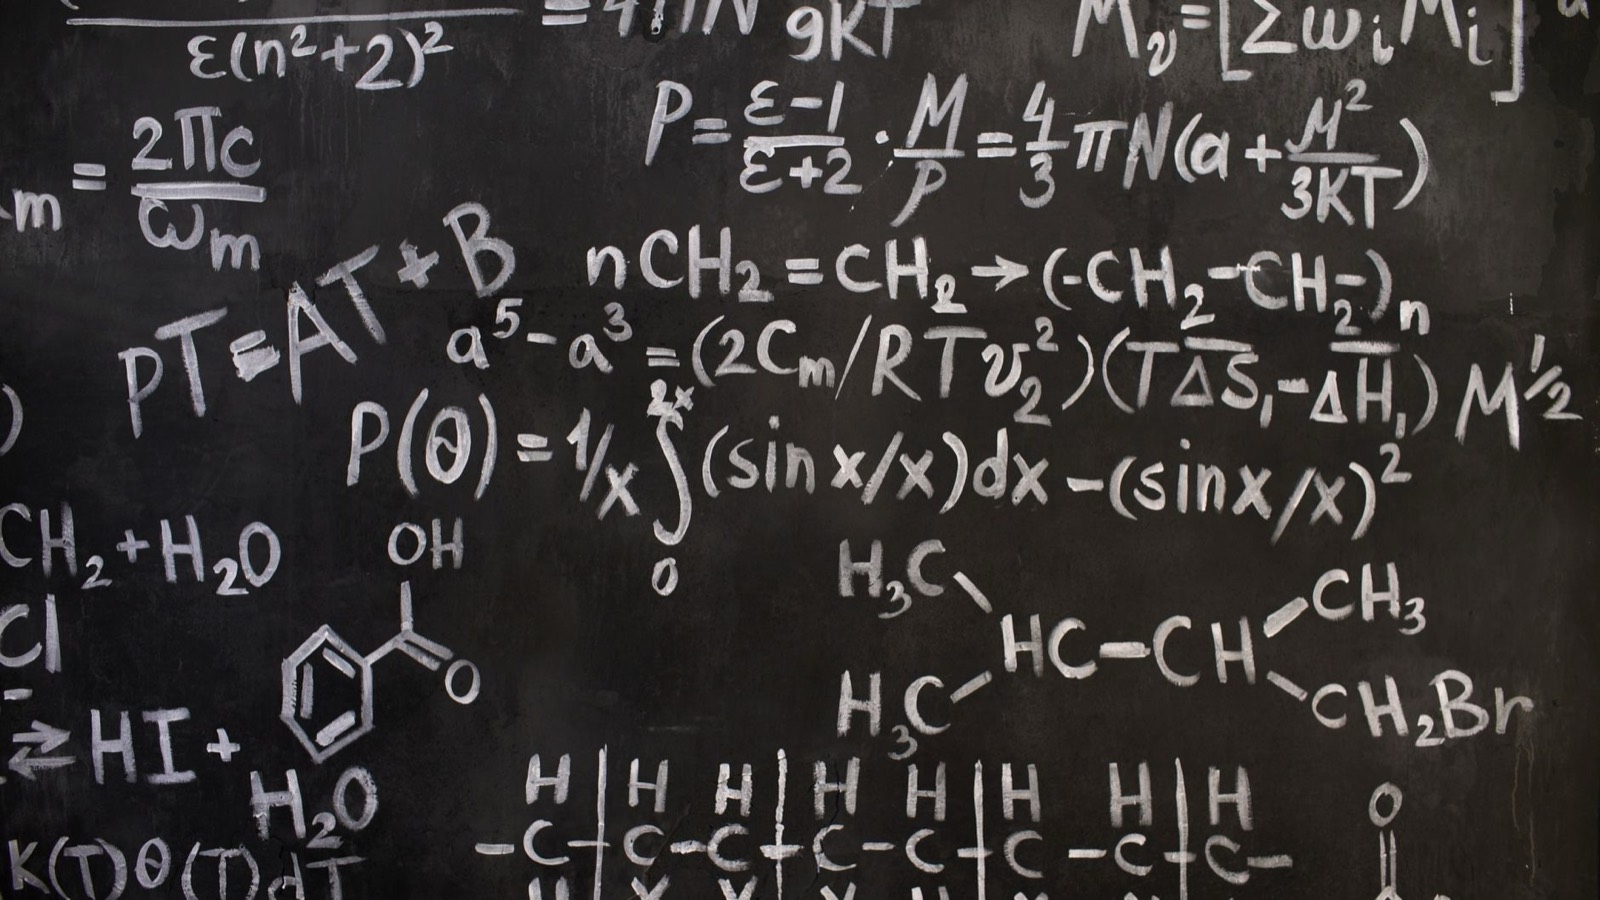 ε(n²+2)²
=4πN
9KT
Mᵥ=[ΣωᵢMᵢ]
m = 2πc/ωm
P = ε-1/ε+2 · M/P = 4/3 πN(a + M²/3KT)
PT=AT+B
nCH₂=CH₂→(-CH₂-CH₂-)n
a⁵-a³=(2Cm/RTv₂²)(TΔS̅₁-ΔH̅₁) M^1/2
P(θ)=1/x ∫₀²ˣ (sin x/x)dx-(sinx/x)²
CH₂+H₂O
OH
O
Cl
⇄ HI + H₂O
K(T)θ(T)dT
H₃C CH₃
HC-CH
H₃C CH₂Br
H H H H H H H H
-C-C-C-C-C-C-C-C-
O